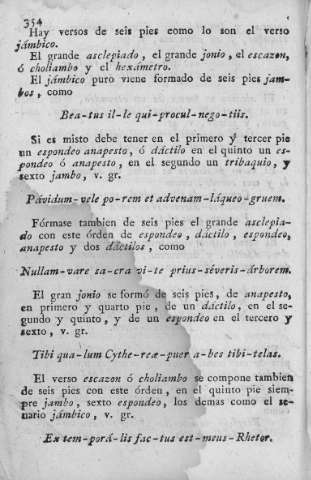 354
Hay versos de seis pies como lo son el verso
jámbico.
El grande asclepiado, el grande jonio, el escazon,
ó choliambo y el hexámetro.
El jámbico puro viene formado de seis pies jam-
bos, como
Bea-tus il-le qui-procul-nego-tiis.
Si es misto debe tener en el primero y tercer pie
un espondeo anapesto, ó dáctilo en el quinto un es-
pondeo ó anapesto, en el segundo un tribaquio, y
sexto jambo, v. gr.
Pávidum-vele po-rem et advenam-láqueo-gruem.
Fórmase tambien de seis pies el grande asclepia-
do con este órden de espondeo, dáctilo, espondeo,
anapesto y dos dáctilos, como
Nullam-vare sa-cra vi-te prius-séveris-árborem.
El gran jonio se formó de seis pies, de anapesto,
en primero y quarto pie, de un dáctilo, en el se-
gundo y quinto, y de un espondeo en el tercero y
sexto, v. gr.
Tibi qua-lum Cythe-reæ-puer a-bes tibi-telas.
El verso escazon ó choliambo se compone tambien
de seis pies con este órden, en el quinto pie siem-
pre jambo, sexto espondeo, los demas como el se-
nario jámbico, v. gr.
Ex tem-porá-lis fac-tus est-meus-Rhetor.